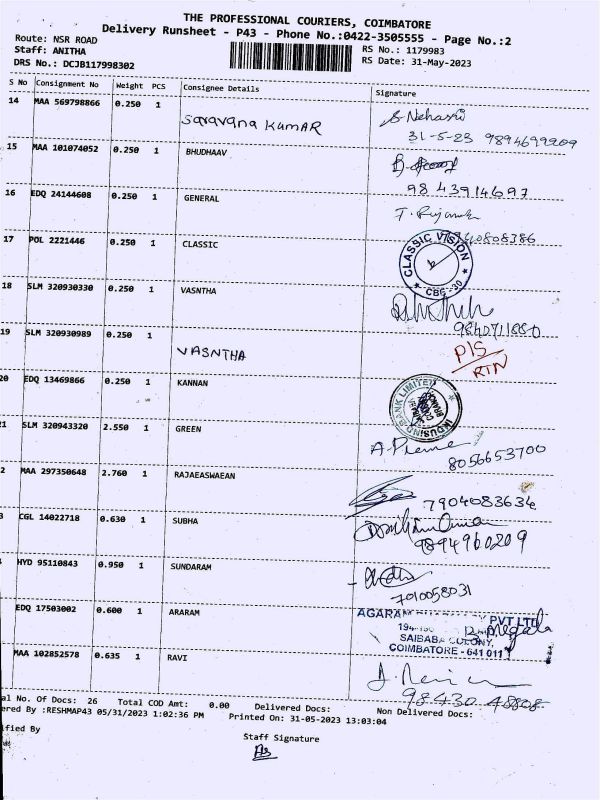 THE PROFESSIONAL COURIERS, COIMBATORE
Delivery Runsheet - P43 - Phone No.:0422-3505555 - Page No.:2
Route: NSR ROAD
Staff: ANITHA
DRS No.: DCJB117998302
RS No.: 1179983
RS Date: 31-May-2023
S No Consignment No Weight PCS Consignee Details Signature
14 MAA 569798866 0.250 1 Saravana KUMAR
31-5-23 9894699909
15 MAA 101074052 0.250 1 BHUDHAAV
98 43914697
16 EDQ 24144608 0.250 1 GENERAL
9940808386
17 POL 2221446 0.250 1 CLASSIC
CLASSIC VISION
CBE-30
18 SLM 320930330 0.250 1 VASNTHA
9840711880
19 SLM 320930989 0.250 1 VASNTHA
P1S
RTN
20 EDQ 13469866 0.250 1 KANNAN
INDUSIND BANK LIMITED
21 SLM 320943320 2.550 1 GREEN
8056653700
2 MAA 297350648 2.760 1 RAJAEASWAEAN
7904083634
3 CGL 14022718 0.630 1 SUBHA
9894960209
HYD 95110843 0.950 1 SUNDARAM
7010058031
EDQ 17503002 0.600 1 ARARAM
AGARAM PVT LTD
SAIBABA COLONY,
COIMBATORE - 641 011
MAA 102852578 0.635 1 RAVI
98430 48808
al No. Of Docs: 26 Total COD Amt: 0.00 Delivered Docs: Non Delivered Docs:
ered By :RESHMAP43 05/31/2023 1:02:36 PM Printed On: 31-05-2023 13:03:04
ified By
Staff Signature